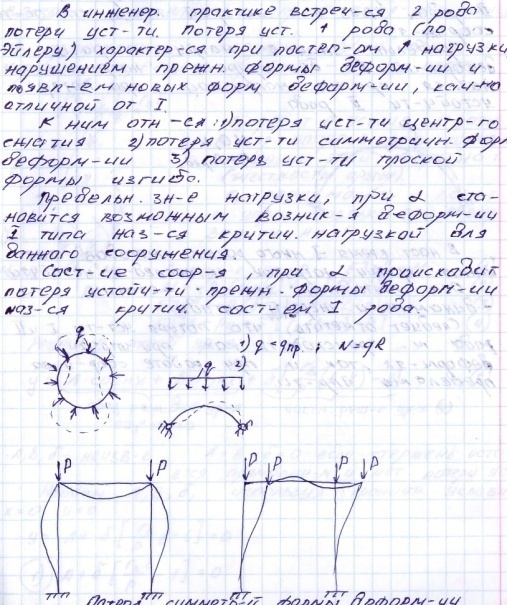 В инженер. практике встреч-ся 2 рода
потери уст-ти. Потеря уст. 1 рода (по
Эйлеру) характер-ся при постеп-ом ↑ нагрузки
нарушением прежн. формы деформ-ии и
появл-ем новых форм деформ-ии, кач-но
отличной от I.
К ним отн-ся: 1) потеря уст-ти центр-го
сжатия 2) потеря уст-ти симметричн. фор
деформ-ии 3) потеря уст-ти плоской
формы изгиба.
Предельн. зн-е нагрузки, при α ста-
новится возможным возник-я деформ-ии
I типа наз-ся критич. нагрузкой для
данного сооружения.
Сост-ие соор-я, при α происходит
потеря устойч-ти прежн. формы деформ-ии
наз-ся критич. сост-ем I рода.
q
1) q = qпр. ; N = qR
q 2)
P P P P P P
Потеря симметр-й формы деформ-ии